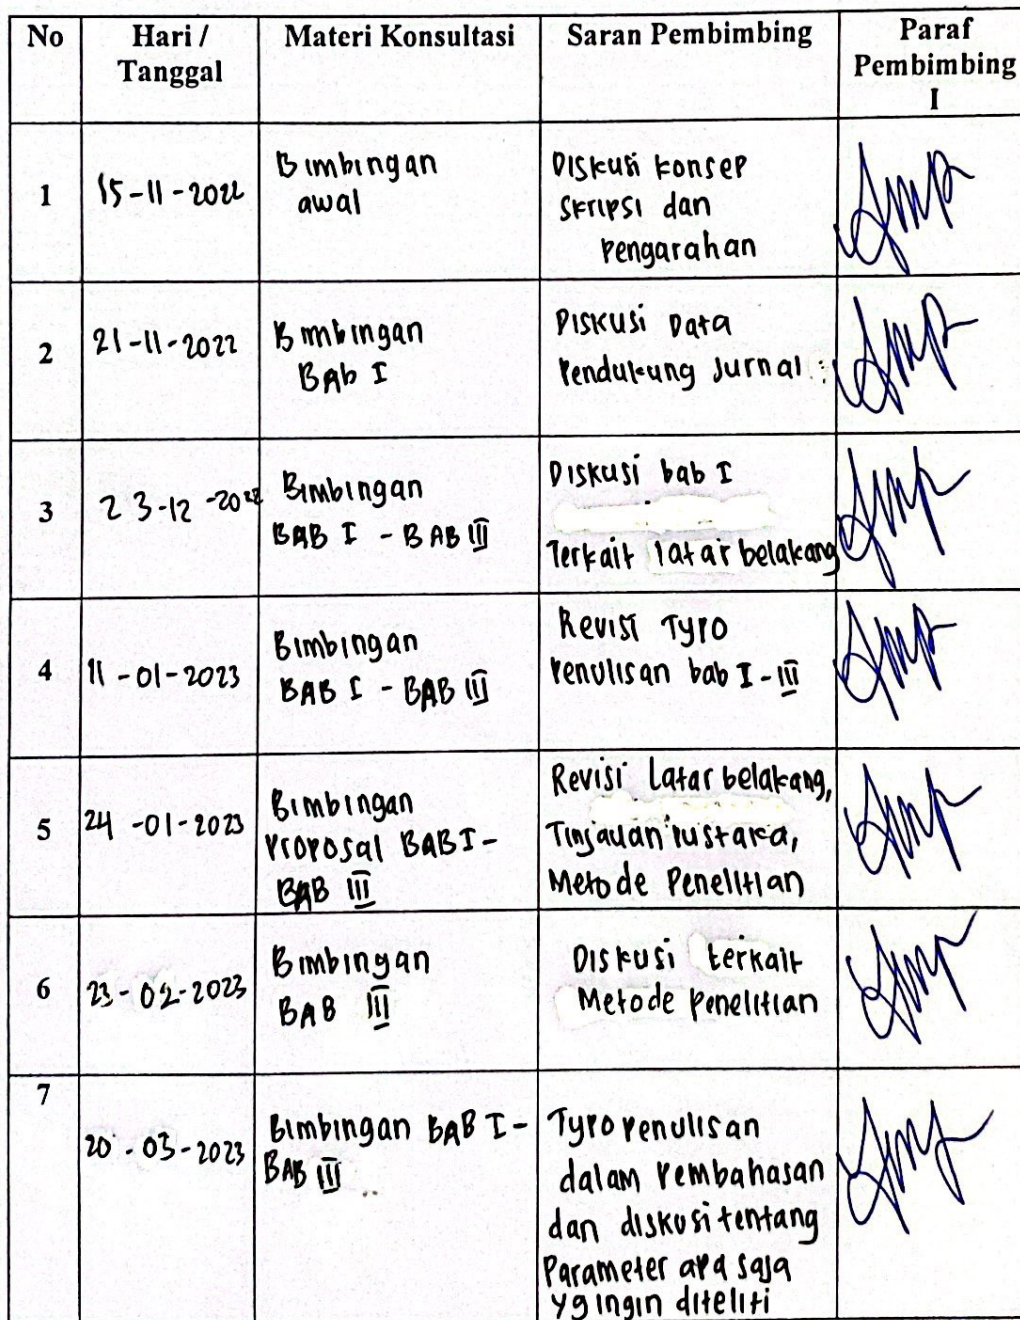 No
Hari /
Tanggal
Materi Konsultasi
Saran Pembimbing
Paraf
Pembimbing
I
1
15-11-2022
Bimbingan
awal
Diskusi konsep
skripsi dan
pengarahan
2
21-11-2022
Bimbingan
BAb I
Diskusi Data
Pendukung Jurnal
3
23-12-2022
Bimbingan
BAB I - BAB III
Diskusi bab I
Terkait latar belakang
4
11-01-2023
Bimbingan
BAB I - BAB III
Revisi Typo
Penulisan bab I-III
5
24-01-2023
Bimbingan
Proposal BAB I-
BAB III
Revisi Latar belakang,
Tinjauan Pustaka,
Metode Penelitian
6
23-02-2023
Bimbingan
BAB III
Diskusi terkait
Metode Penelitian
7
20-03-2023
Bimbingan BAB I-
BAB III
Typo penulisan
dalam Pembahasan
dan diskusi tentang
Parameter apa saja
yg ingin diteliti